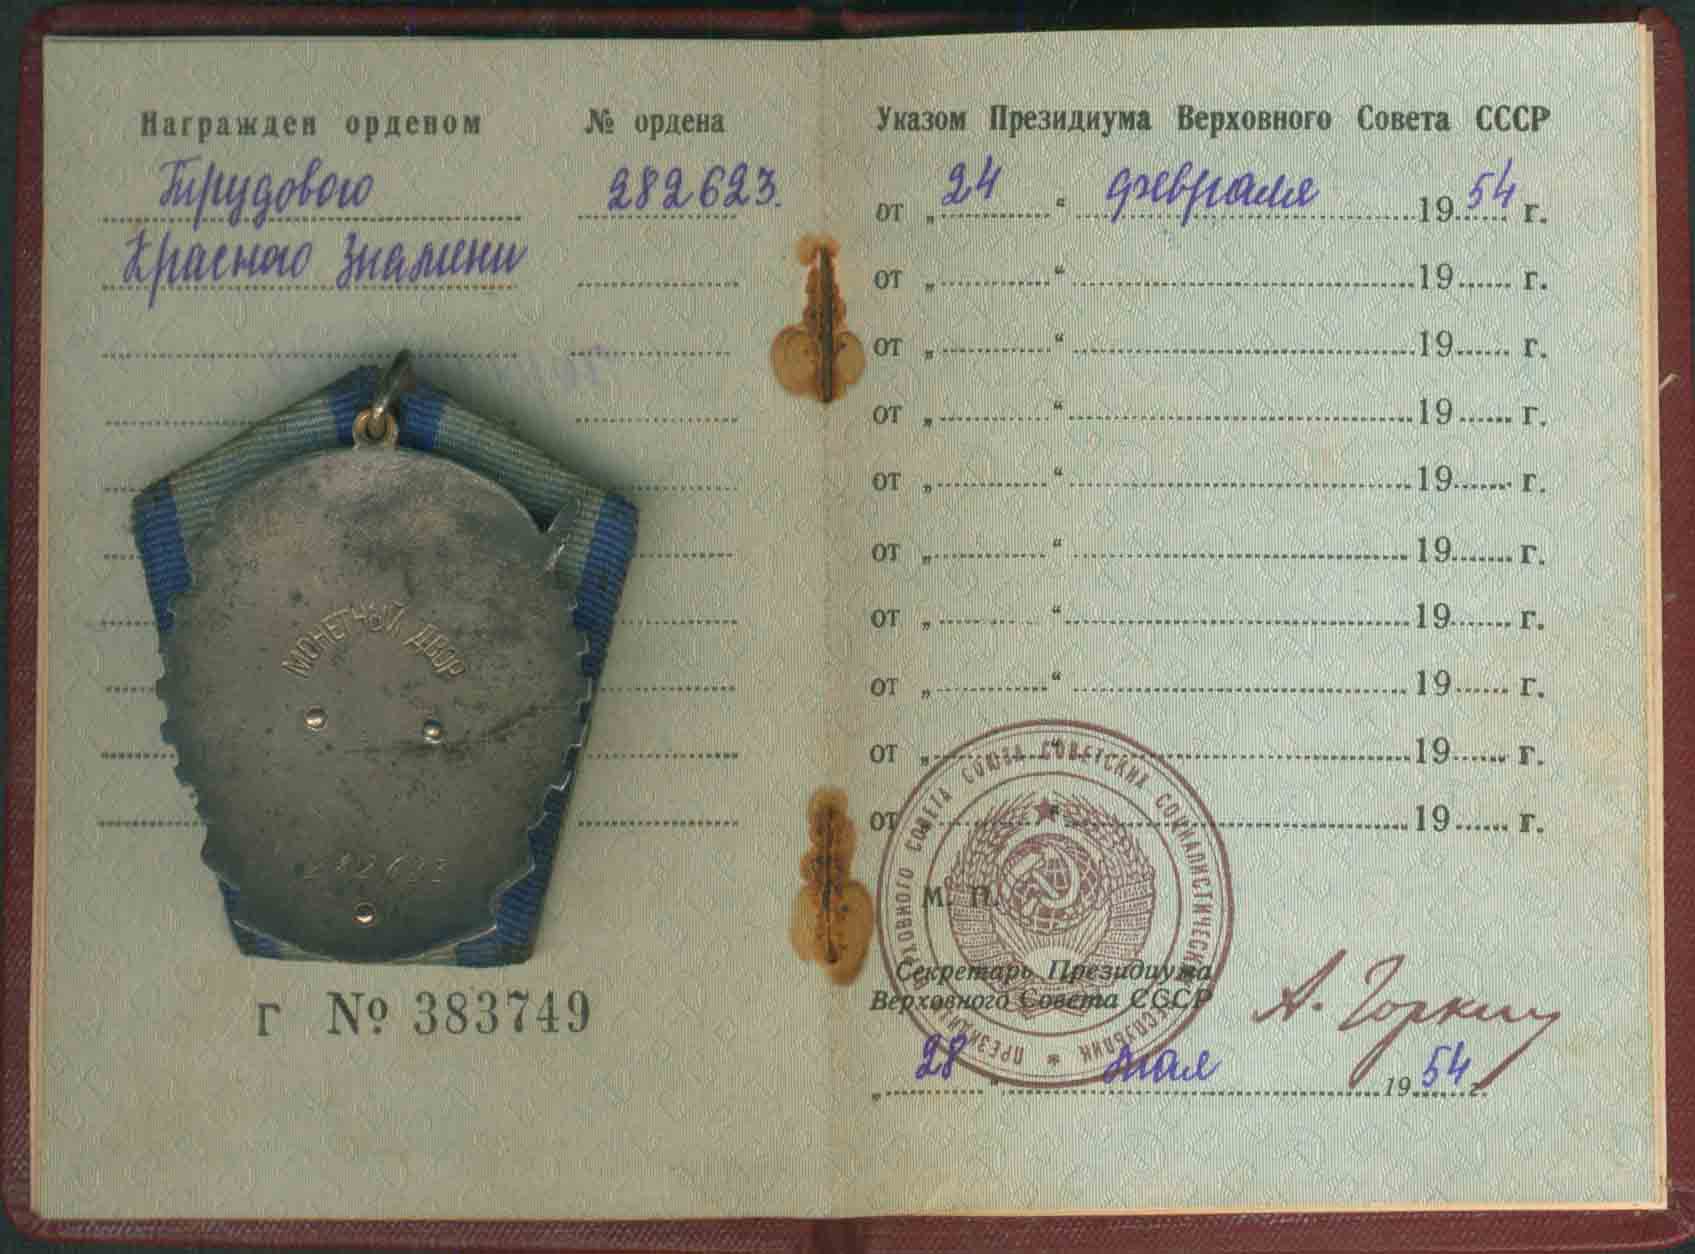 Награжден орденом
№ ордена
Трудового
282623.
Красного Знамени
МОНЕТНЫЙ ДВОР
282623
Г № 383749
Указом Президиума Верховного Совета СССР
от „ 24 “ февраля 1954 г.
от „ “ 19 г.
от „ “ 19 г.
от „ “ 19 г.
от „ “ 19 г.
от „ “ 19 г.
от „ “ 19 г.
от „ “ 19 г.
от „ “ 19 г.
от „ “ 19 г.
ПРЕЗИДИУМ ВЕРХОВНОГО СОВЕТА СОЮЗА СОВЕТСКИХ СОЦИАЛИСТИЧЕСКИХ РЕСПУБЛИК *
М. П.
Секретарь Президиума
Верховного Совета СССР
А. Горкин
„ 28 “ мая 1954 г.